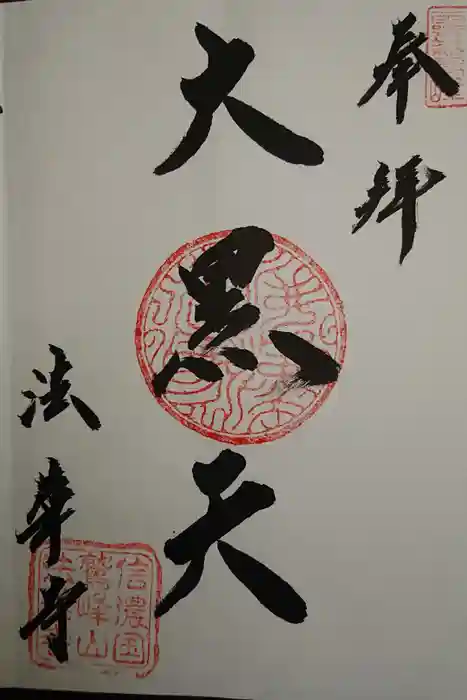 奉拝
大黒天
法華寺
信濃国
鷲峰山